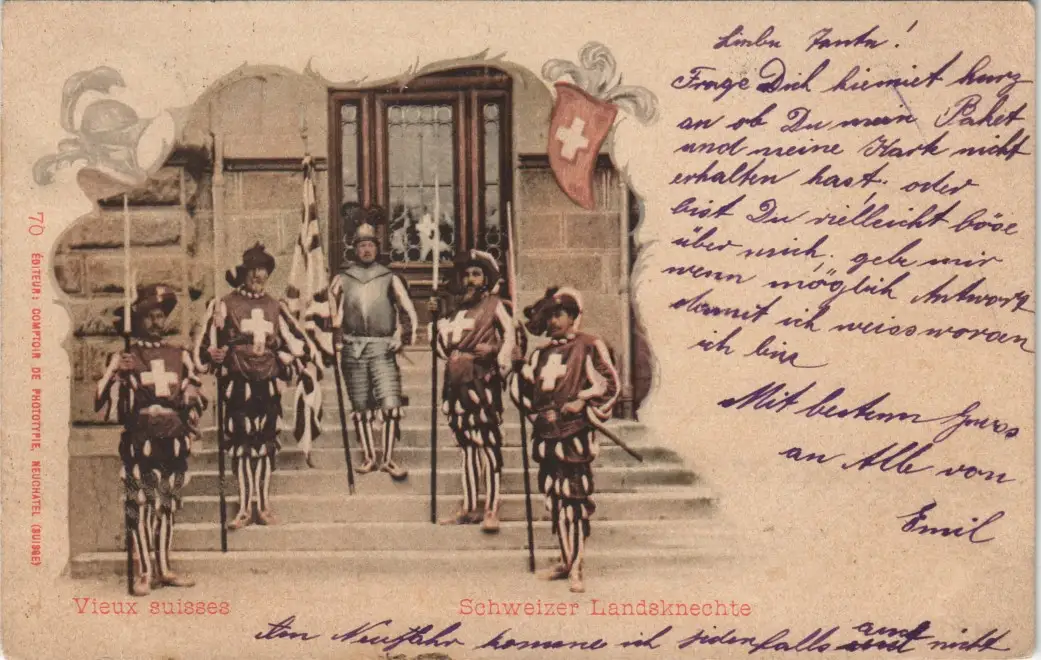 Liebe Tante!
Frage Dich hiemiet kurz
an ob Du mein Paket
und meine Kark nicht
erhalten hast. oder
bist Du vielleicht böse
über mich. gebe mir
wenn möglich Antwort
damit ich weiss woran
ich bin
Mit bestem Gruss
an Alle von
Emil
70 ÉDITEUR: COMPTOIR DE PHOTOTYPIE, NEUCHATEL (SUISSE)
Vieux suisses
Schweizer Landsknechte
Am Neujahr komme ich jedenfalls auch nicht